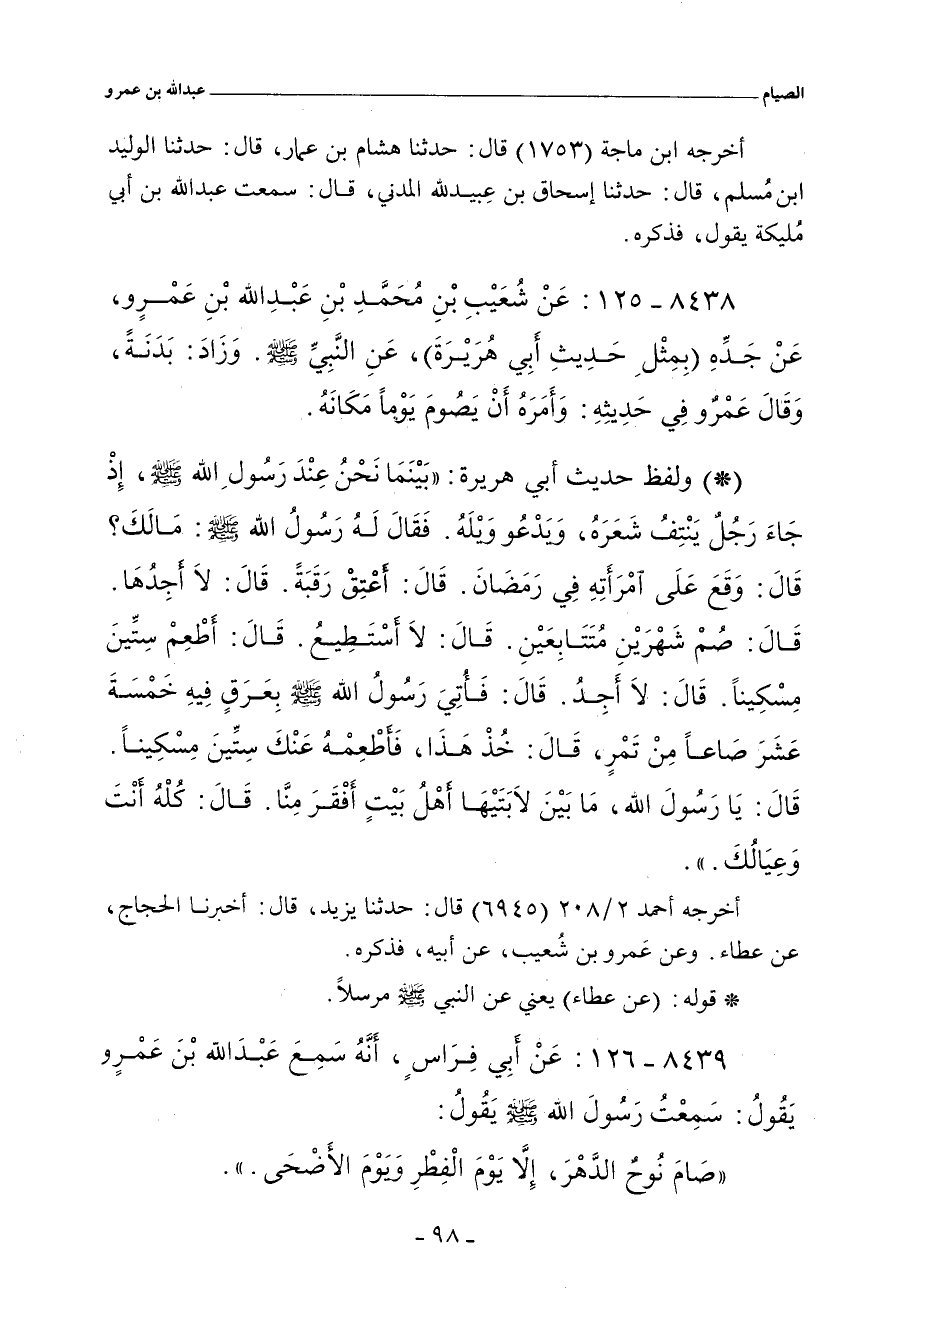 الصيام ــــــــــــ عبدالله بن عمرو
أخرجه ابن ماجة (١٧٥٣) قال: حدثنا هشام بن عمار، قال: حدثنا الوليد
ابن مُسلم، قال: حدثنا إسحاق بن عبيدلله المدني، قال: سمعت عبدالله بن أبي
مُليكة يقول، فذكره.
٨٤٣٨ - ١٢٥: عَنْ شُعَيْبِ بْنِ مُحَمَّدِ بْنِ عَبْدِالله بْنِ عَمْرٍو،
عَنْ جَدِّهِ (بِمِثْلِ حَدِيثِ أَبِي هُرَيْرَةَ)، عَنِ النَّبِيِّ ﷺ. وَزَادَ: بَدَنَةً،
وَقَالَ عَمْرٌو فِي حَدِيثِهِ: وَأَمَرَهُ أَنْ يَصُومَ يَوْماً مَكَانَهُ.
(*) ولفظ حديث أبي هريرة: «بَيْنَمَا نَحْنُ عِنْدَ رَسُولِ الله ﷺ، إِذْ
جَاءَ رَجُلٌ يَنْتِفُ شَعَرَهُ، وَيَدْعُو وَيْلَهُ. فَقَالَ لَهُ رَسُولُ الله ﷺ: مَالَكَ؟
قَالَ: وَقَعَ عَلَى آمْرَأَتِهِ فِي رَمَضَانَ. قَالَ: أَعْتِقْ رَقَبَةً. قَالَ: لاَ أَجِدُهَا.
قَالَ: صُمْ شَهْرَيْنِ مُتَتَابِعَيْنِ. قَالَ: لاَ أَسْتَطِيعُ. قَالَ: أَطْعِمْ سِتِّينَ
مِسْكِيناً. قَالَ: لاَ أَجِدُ. قَالَ: فَأُتِيَ رَسُولُ الله ﷺ بِعَرَقٍ فِيهِ خَمْسَةَ
عَشَرَ صَاعاً مِنْ تَمْرٍ، قَالَ: خُذْ هَذَا، فَأَطْعِمْهُ عَنْكَ سِتِّينَ مِسْكِيناً.
قَالَ: يَا رَسُولَ الله، مَا بَيْنَ لاَبَتَيْهَا أَهْلُ بَيْتٍ أَفْقَرَ مِنَّا. قَالَ: كُلْهُ أَنْتَ
وَعِيَالُكَ.».
أخرجه أحمد ٢٠٨/٢ (٦٩٤٥) قال: حدثنا يزيد، قال: أخبرنا الحجاج،
عن عطاء. وعن عَمرو بن شُعيب، عن أبيه، فذكره.
* قوله: (عن عطاء) يعني عن النبي ﷺ مرسلاً.
٨٤٣٩ - ١٢٦: عَنْ أَبِي فِرَاسٍ، أَنَّهُ سَمِعَ عَبْدَالله بْنَ عَمْرٍو
يَقُولُ: سَمِعْتُ رَسُولَ الله ﷺ يَقُولُ:
«صَامَ نُوحٌ الدَّهْرَ، إِلَّا يَوْمَ الْفِطْرِ وَيَوْمَ الأَضْحَى.».
- ٩٨ -